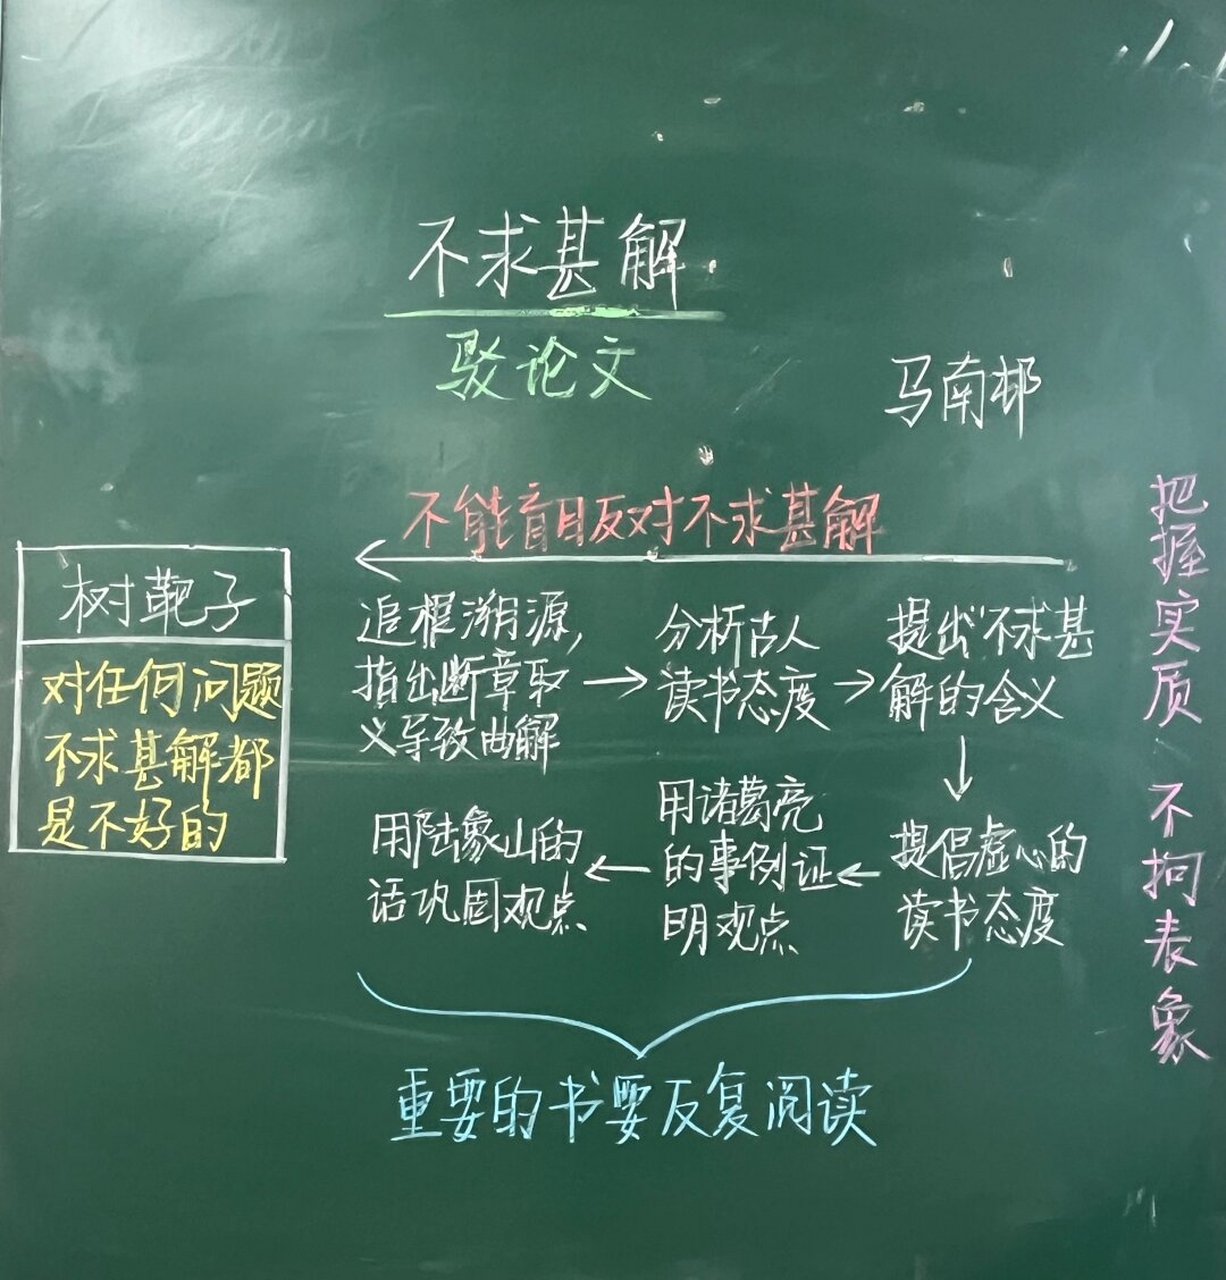 不求甚解
驳论文
马南邨
不能盲目反对不求甚解
树靶子
对任何问题
不求甚解都
是不好的
追根溯源,
指出断章取
义导致曲解
分析古人
读书态度
提出“不求甚
解的含义
提倡虚心的
读书态度
用诸葛亮
的事例证
明观点
用陆象山的
话巩固观点
重要的书要反复阅读
把握实质 不拘表象